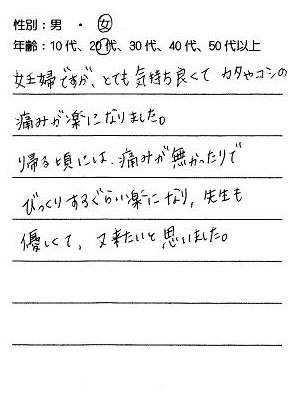 性別：男 ・ 女
年齢：10代、20代、30代、40代、50代以上
妊婦ですが、とても気持ち良くて カタやコシの
痛みが楽になりました。
帰る頃には、痛みが無かったりで
びっくりするぐらい楽になり、先生も
優しくて、又来たいと思いました。